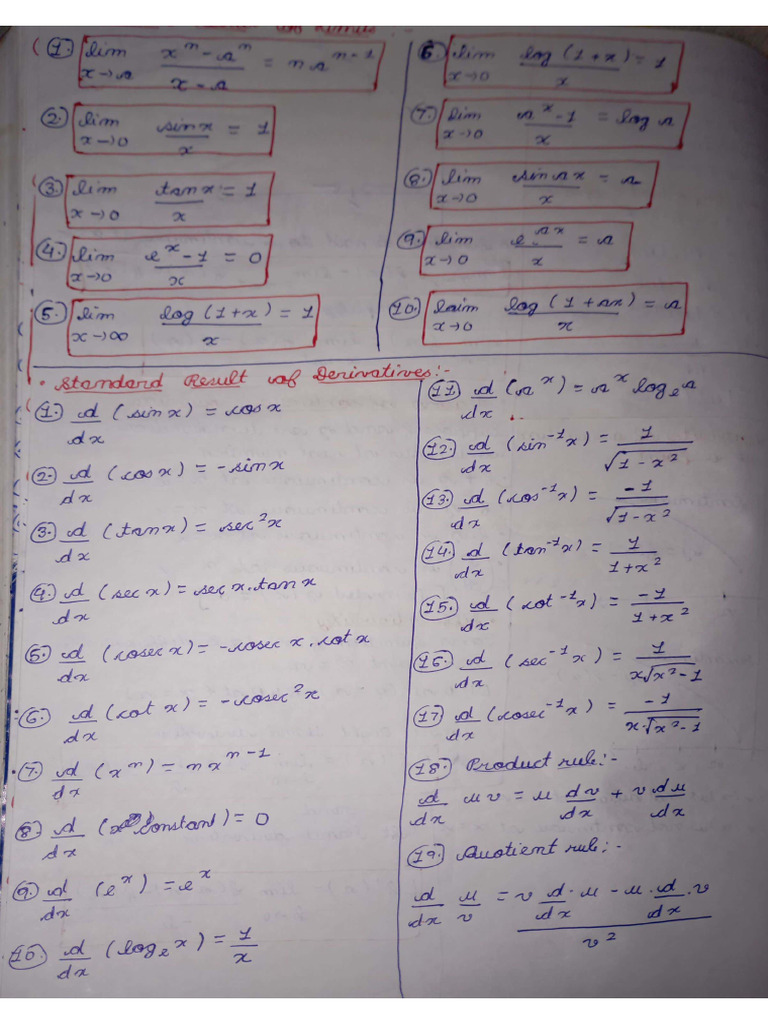 of Limits :-
(1.) lim x→a (x^n - a^n)/(x - a) = n a^(n-1)
(2.) lim x→0 sinx/x = 1
(3.) lim x→0 tanx/x = 1
(4.) lim x→0 (e^x - 1)/x = 0
(5.) lim x→∞ log(1+x)/x = 1
(6.) lim x→0 log(1+x)/x = 1
(7.) lim x→0 (a^x - 1)/x = log a
(8.) lim x→0 sin ax/x = a
(9.) lim x→0 e^(ax)/x = a
(10.) laim x→0 log(1+ax)/x = a
• Standard Result of Derivatives:-
(1.) d/dx (sinx) = cosx
(2.) d/dx (cosx) = -sinx
(3.) d/dx (tanx) = sec²x
(4.) d/dx (secx) = secx.tanx
(5.) d/dx (cosecx) = -cosec x.cot x
(6.) d/dx (cot x) = -cosec²x
(7.) d/dx (x^n) = nx^(n-1)
(8.) d/dx (constant) = 0
(9.) d/dx (e^x) = e^x
(10.) d/dx (log_e x) = 1/x
(11.) d/dx (a^x) = a^x log_e a
(12.) d/dx (sin⁻¹x) = 1/√(1-x²)
(13.) d/dx (cos⁻¹x) = -1/√(1-x²)
(14.) d/dx (tan⁻¹x) = 1/(1+x²)
(15.) d/dx (cot⁻¹x) = -1/(1+x²)
(16.) d/dx (sec⁻¹x) = 1/(x√(x²-1))
(17.) d/dx (cosec⁻¹x) = -1/(x.√(x²-1))
(18.) Product rule:-
d/dx uv = u dv/dx + v du/dx
(19.) Quotient rule:-
d/dx u/v = (v d/dx .u - u.d/dx .v)/v²